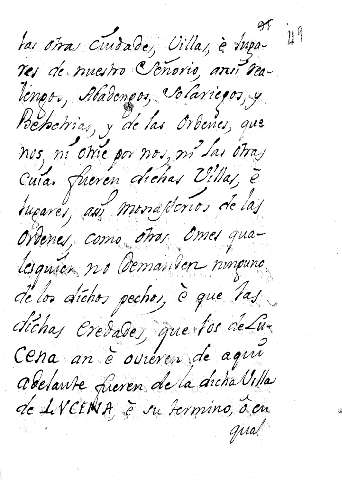 49
tas otras Ciudades, Villas, è Luga-
res de nuestro Señorio, ansi Rea-
lengos, Abadengos, Solariegos, y
Behetrias, y de las Ordenes, que
nos, ni otrie por nos, ni las otras
cuias fueren dichas Villas, è
Lugares, asi Monasterios de las
Ordenes, como otros Omes qua-
lesquier no Demanden ninguno
de los dichos pechos, è que las
dichas Eredades, que los de Lu-
cena an è ovieren de aqui
adelante fueren de la dicha Villa
de LVCENA, è su termino, ò en
qual